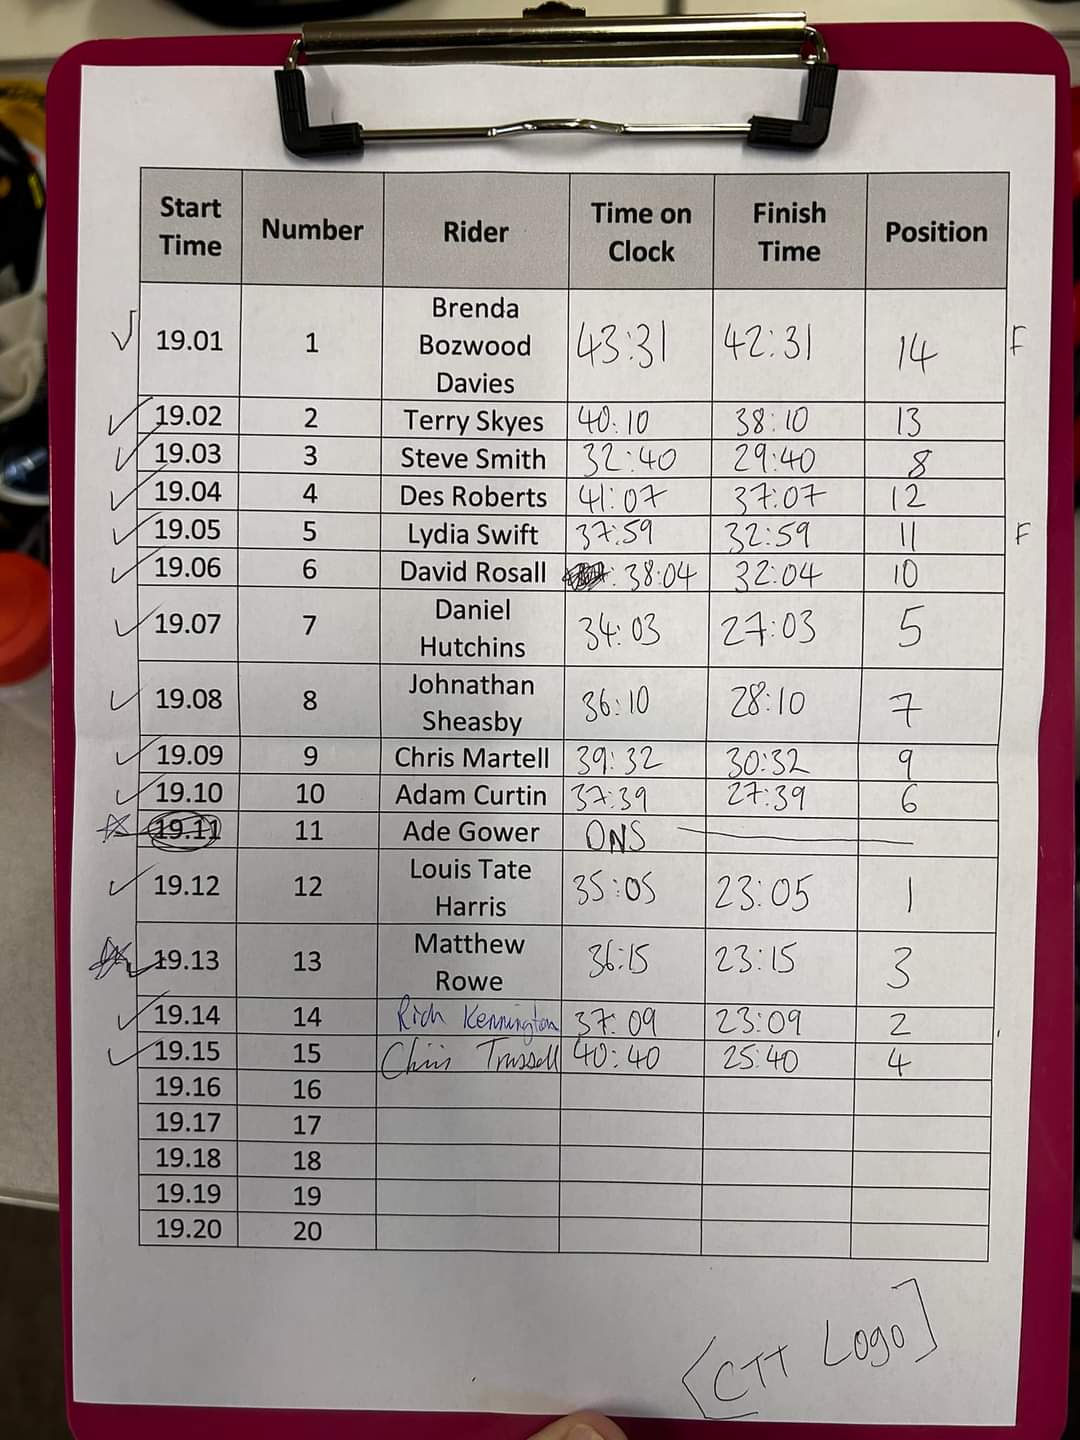 Start Time Number Rider Time on Clock Finish Time Position
19.01 1 Brenda Bozwood Davies 43:31 42:31 14 F
19.02 2 Terry Skyes 40:10 38:10 13
19.03 3 Steve Smith 32:40 29:40 8
19.04 4 Des Roberts 41:07 37:07 12
19.05 5 Lydia Swift 37:59 32:59 11 F
19.06 6 David Rosall : 38:04 32:04 10
19.07 7 Daniel Hutchins 34:03 27:03 5
19.08 8 Johnathan Sheasby 36:10 28:10 7
19.09 9 Chris Martell 39:32 30:32 9
19.10 10 Adam Curtin 37:39 27:39 6
19.11 11 Ade Gower DNS
19.12 12 Louis Tate Harris 35:05 23:05 1
19.13 13 Matthew Rowe 36:15 23:15 3
19.14 14 Rich Kennington 37:09 23:09 2
19.15 15 Chris Trussell 40:40 25:40 4
19.16 16
19.17 17
19.18 18
19.19 19
19.20 20
[CTT Logo]